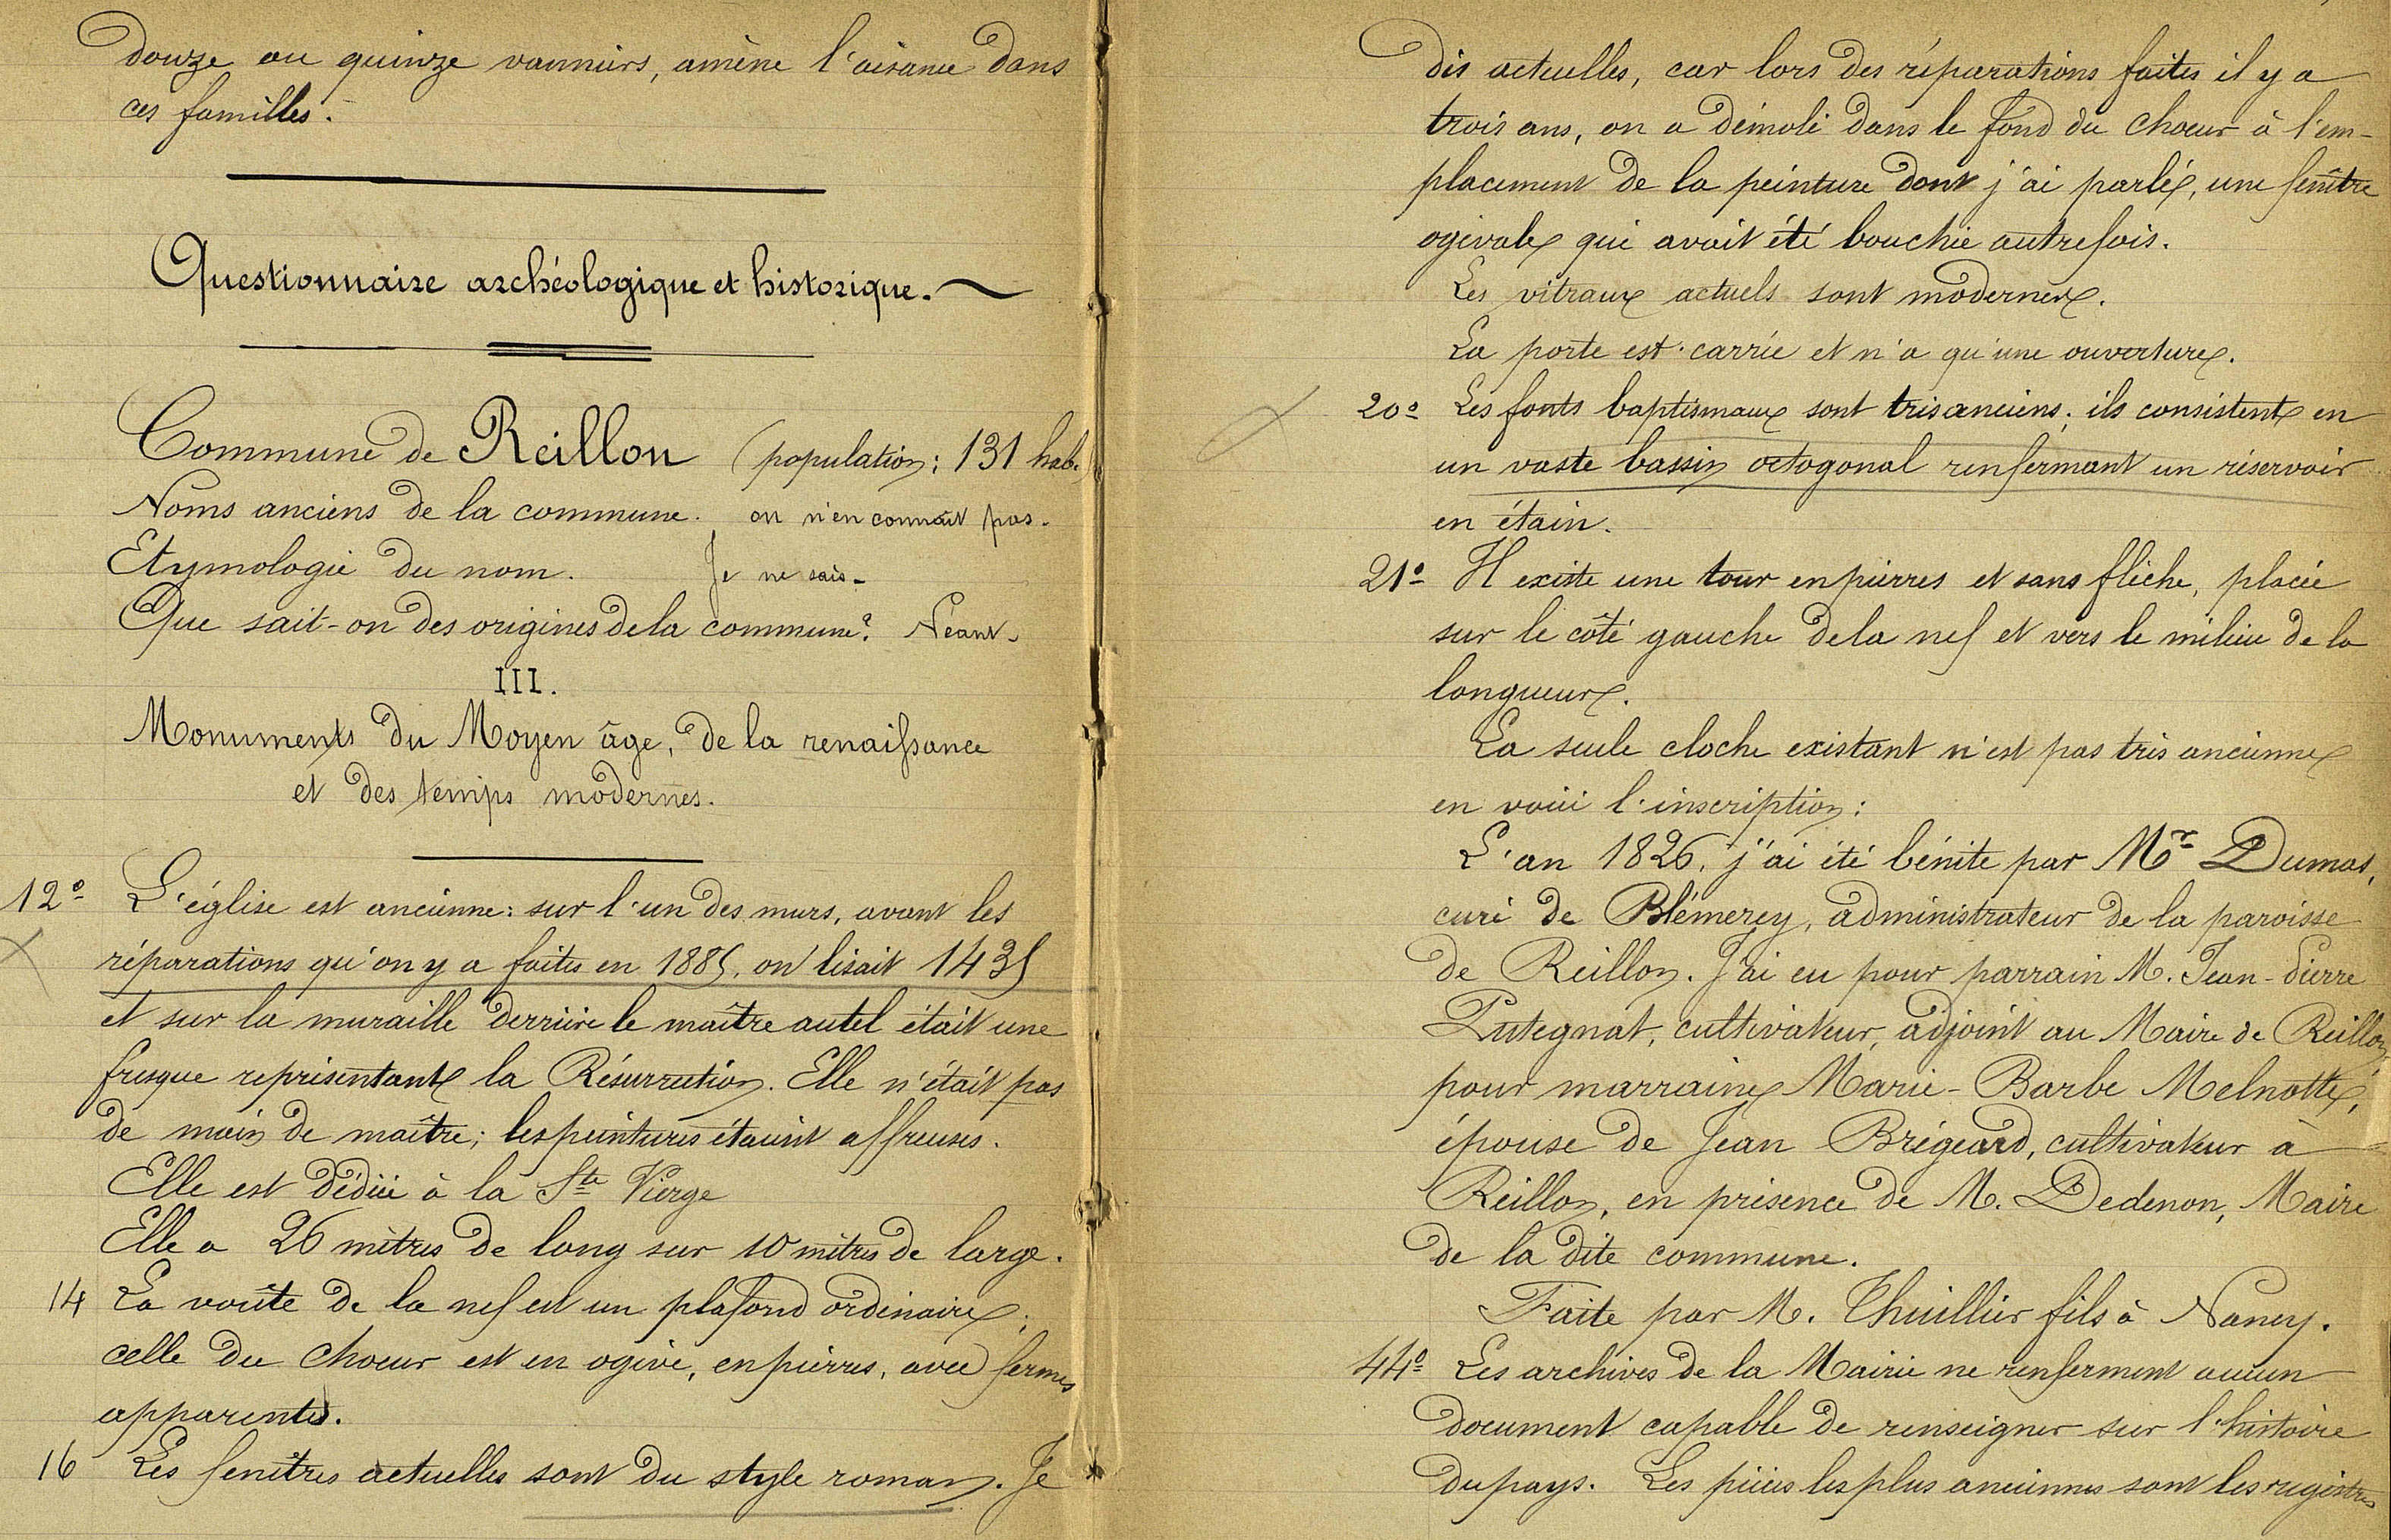 douze ou quinze vanniers, amène l'aisance dans
ces familles.
Questionnaire archéologique et historique.
Commune de Reillon (population: 131 hab.)
Noms anciens de la commune. on n'en connait pas.
Etymologie du nom. Je ne sais.
Que sait-on des origines de la commune? Néant.
III.
Monuments du Moyen âge, de la renaissance
et des temps modernes.
12º L'église est ancienne: sur l'un des murs, avant les
réparations qu'on y a faites en 1885, on lisait 1435
et sur la muraille derrière le maître autel était une
fresque représentant la Résurrection. Elle n'était pas
de main de maître; les peintures étaient affreuses.
Elle est dédiée à la Ste Vierge
Elle a 26 mètres de long sur 10 mètres de large.
14 La voûte de la nef est un plafond ordinaire;
celle du choeur est en ogive, en pierres, avec fermes
apparentes.
16 Les fenêtres actuelles sont du style roman. Je
dis actuelles, car lors des réparations faites il y a
trois ans, on a démoli dans le fond du choeur à l'em-
placement de la peinture dont j'ai parlé, une fenêtre
ogivale qui avait été bouchée autrefois.
Les vitraux actuels sont modernes.
La porte est carrée et n'a qu'une ouverture.
20º Les fonts baptismaux sont très anciens; ils consistent en
un vaste bassin octogonal renfermant un réservoir
en étain.
21º Il existe une tour en pierres et sans flèche, placée
sur le côté gauche de la nef et vers le milieu de la
longueur.
La seule cloche existant n'est pas très ancienne
en voici l'inscription:
L'an 1826, j'ai été bénite par Mr Dumas,
curé de Blémerey, administrateur de la paroisse
de Reillon. J'ai eu pour parrain M. Jean-Pierre
Putegnat, cultivateur, adjoint au Maire de Reillon,
pour marraine Marie-Barbe Melnotte,
épouse de Jean Brégeard, cultivateur à
Reillon, en présence de M. Dedenon, Maire
de la dite commune.
Faite par M. Thuillier fils à Nancy.
44º Les archives de la Mairie ne renferment aucun
document capable de renseigner sur l'histoire
du pays. Les pièces les plus anciennes sont les registres